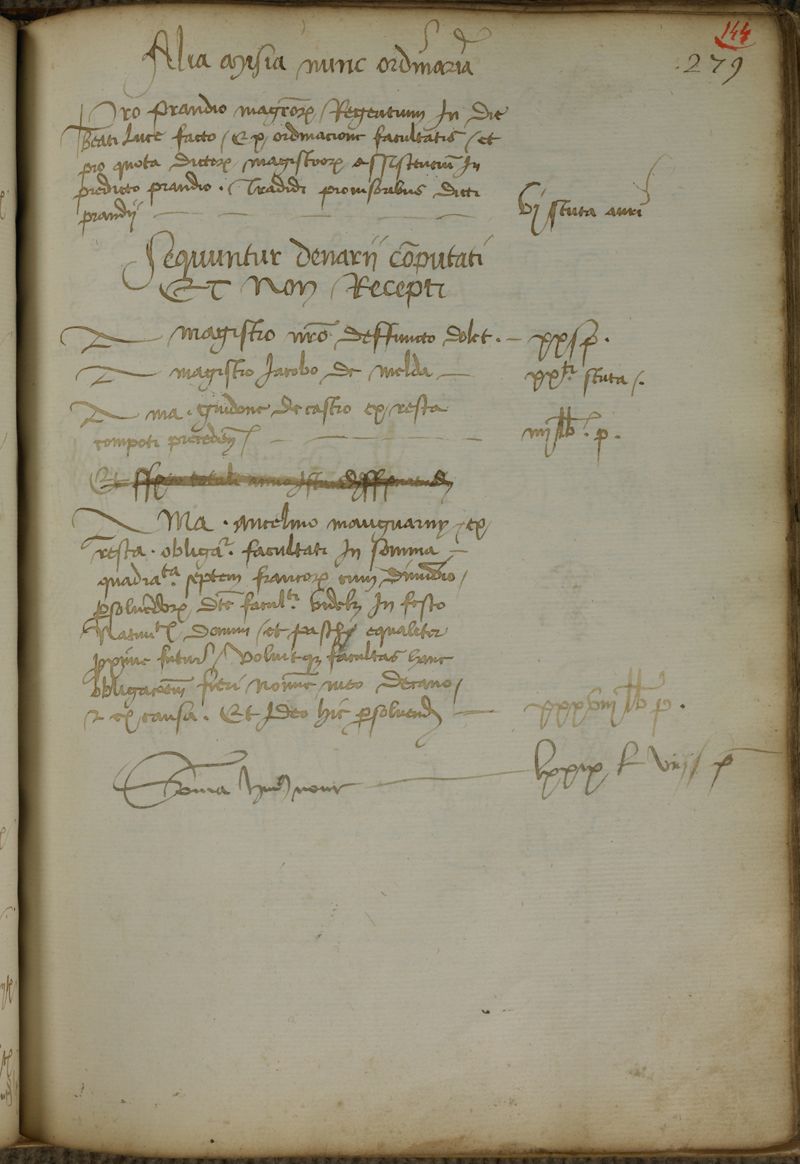 144
279
Alia misia nunc ordinaria
Pro prandio magrorum Regentium In die
Beati Luce facto / Ex ordinacione facultatis / et
pro quota dictorum magistrorum assistentium In
predicto prandio . Tradidi provisoribus dicti
prandii
vj scuta auri
Sequuntur denarii computati
Et Non Recepti
A magistro nro deffuncto dolet . xx s p .
A magistro Jacobo de melda xx ti scuta
A ma . Guidone de castro ex resta
compoti precedentis iiij lb . p .
Et
A Ma . Ancelmo mauguarny ex
resta . obligat . facultati In somma
quadrata septem francorum cum dimidio /
persolvendorum dicte facult . videlicet In festo
Nativit domini / et pasche equaliter
proxime futur / voluitque facultas hanc
obligacionem fieri nomine meo decano /
et ex causa . Et Ideo hic persolvend xxxviij lb p .
Soma huius lxxix l viij s p